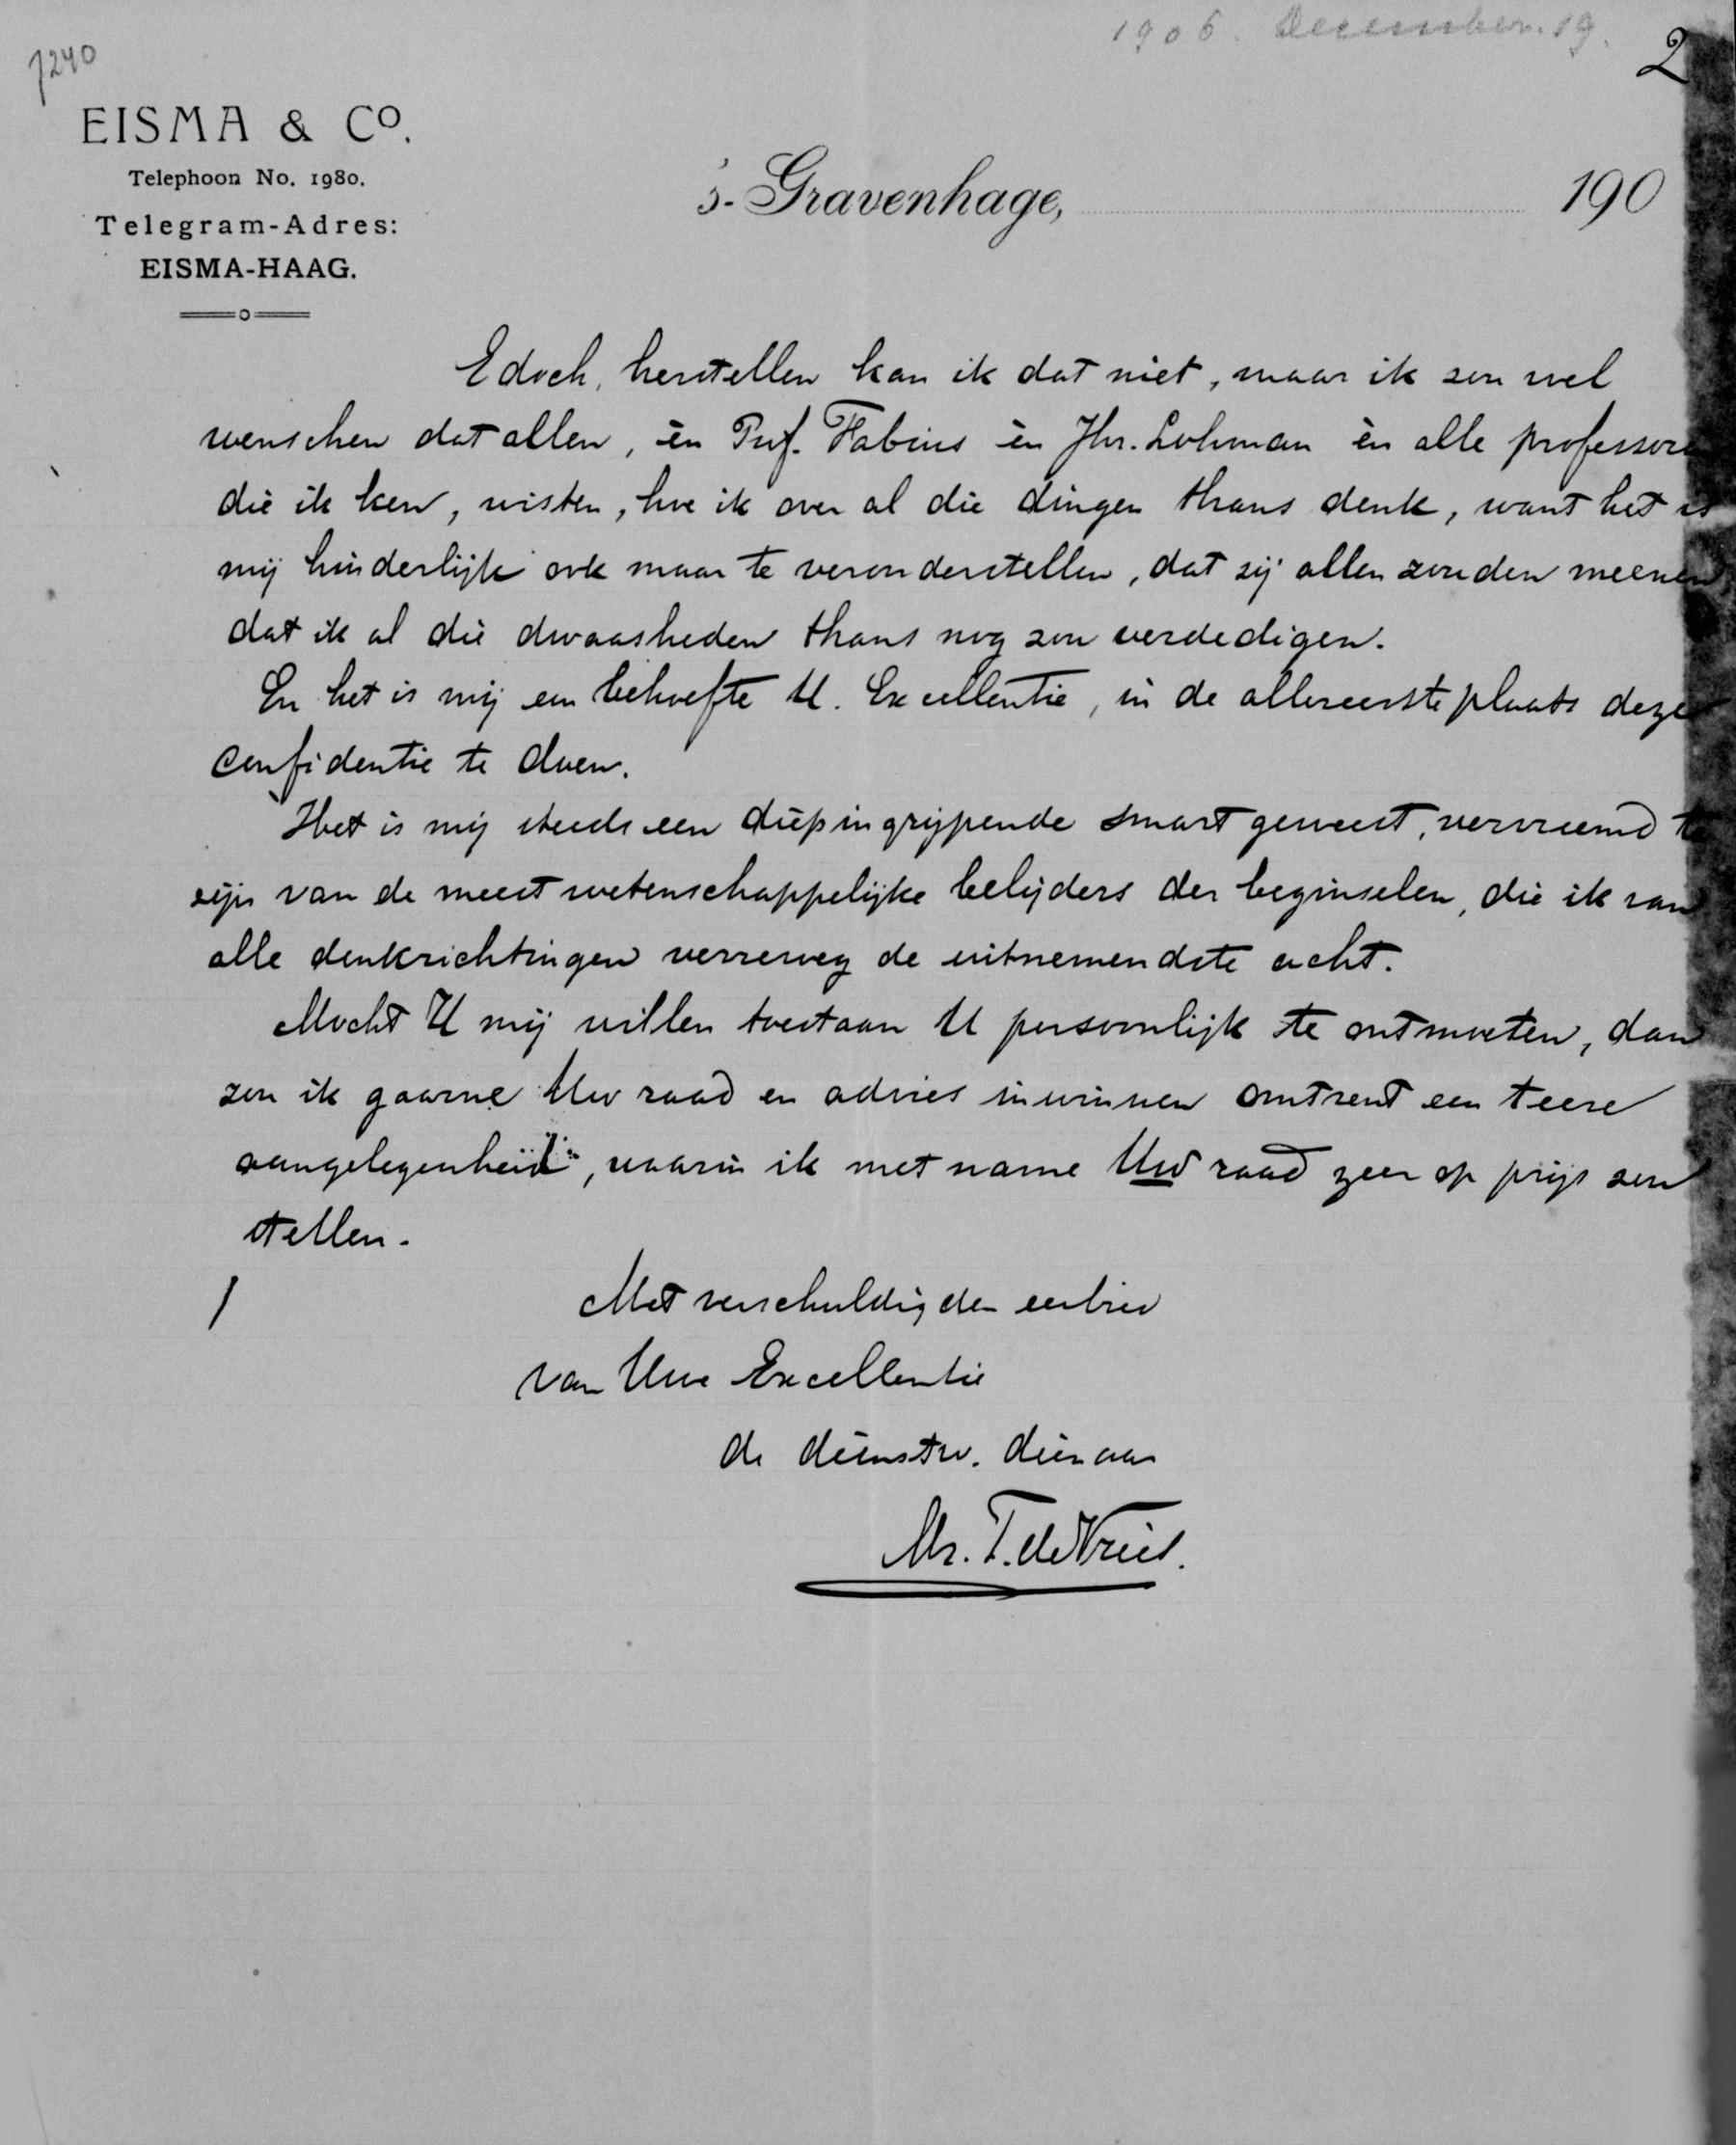 1906. December. 19.
2
7240
EISMA & Co.
Telephoon No. 1980.
Telegram-Adres:
EISMA-HAAG.
's-Gravenhage, 190
Edoch, herstellen kan ik dat niet, maar ik zou wel
wenschen dat allen, èn Prof. Fabius èn Jhr. Lohman èn alle professoren
die ik ken, wisten, hoe ik over al die dingen thans denk, want het is
mij hinderlijk ook maar te veronderstellen, dat zij allen zouden meenen
dat ik al die dwaasheden thans nog zou verdedigen.
En het is mij een behoefte U. Excellentie, in de allereerste plaats deze
confidentie te doen.
Het is mij steeds een diepingrijpende smart geweest, vervreemd te
zijn van de meest wetenschappelijke belijders der beginselen, die ik van
alle denkrichtingen verreweg de uitnemendste acht.
Mocht U mij willen toestaan U persoonlijk te ontmoeten, dan
zou ik gaarne Uw raad en advies inwinnen omtrent een teere
aangelegenheid, waarin ik met name Uw raad zeer op prijs zou
stellen.
Met verschuldigden eerbied
van Uwe Excellentie
de dienstw. dienaar
Mr. T. de Vries.